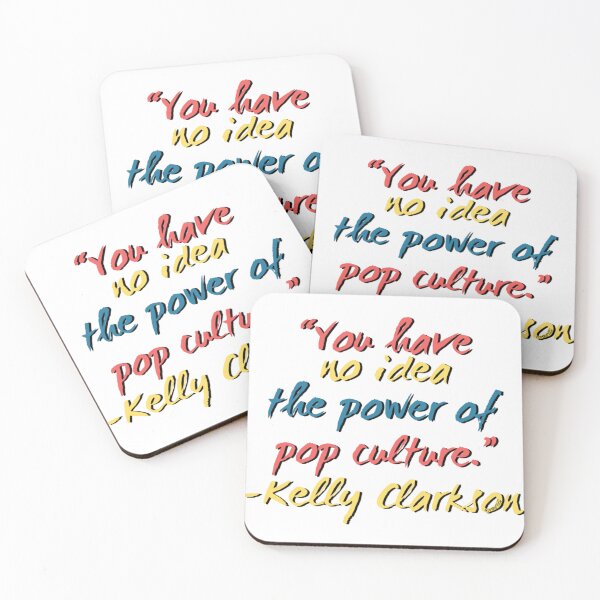 “You have
no idea
the power o
“You have
no idea
the power of
pop culture.”
“You have
no idea
the power of
pop cultu
-Kelly Cl
“You have
no idea
the power of
pop culture.”
-Kelly Clarkson